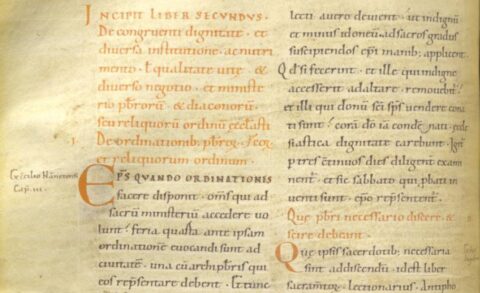 INCIPIT LIBER SECUNDUS.
De congruenti dignitate · et
diversa institutione, ac nutri
mento · ł qualitate vitę · &
diverso negotio · et ministe
rio pb̄rorū · & diaconorū ·
seu reliquorū ordinū ęcclēsti
De ordinationib; pb̄ror̄,
et reliquorum ordinum ·
Ep̄s quando ordinationis
facere disponit · om̄s qui ad
sacrū ministeriū accedere vo
lunt · feria quarta ante ipsam
ordinatione evocandi sunt ad
civitatē · una cū archipb̄ris qui
eos rep̄sentare debent · Et tunc
Cap. iii.
lecti autoro devient · ut indignū
et minus idoneū, ad sacros gradus
suscipiendos ep̄i manib; applicent
Qd si fecerint · et ille qui indigne
accesserit ab altare removebit ·
et illi qui donū sc̄i sp̄s vendere cona
ti sunt · corā dō iā condēpnati · ecclę
siastica dignitate carebunt · Igit̄
p̄ tres c̄tinuos dies diligent̄ exami
nent · et sic sabbato qui p̄bati in
venti sunt · ep̄o rep̄sentent ·
Quę pb̄ri necessario discere &
scire debeant ·
Quę ipsis sacerdotib; necessaria
sunt ad discendū · id est liber
sacramētor̄ · Lectionarius · Antipho